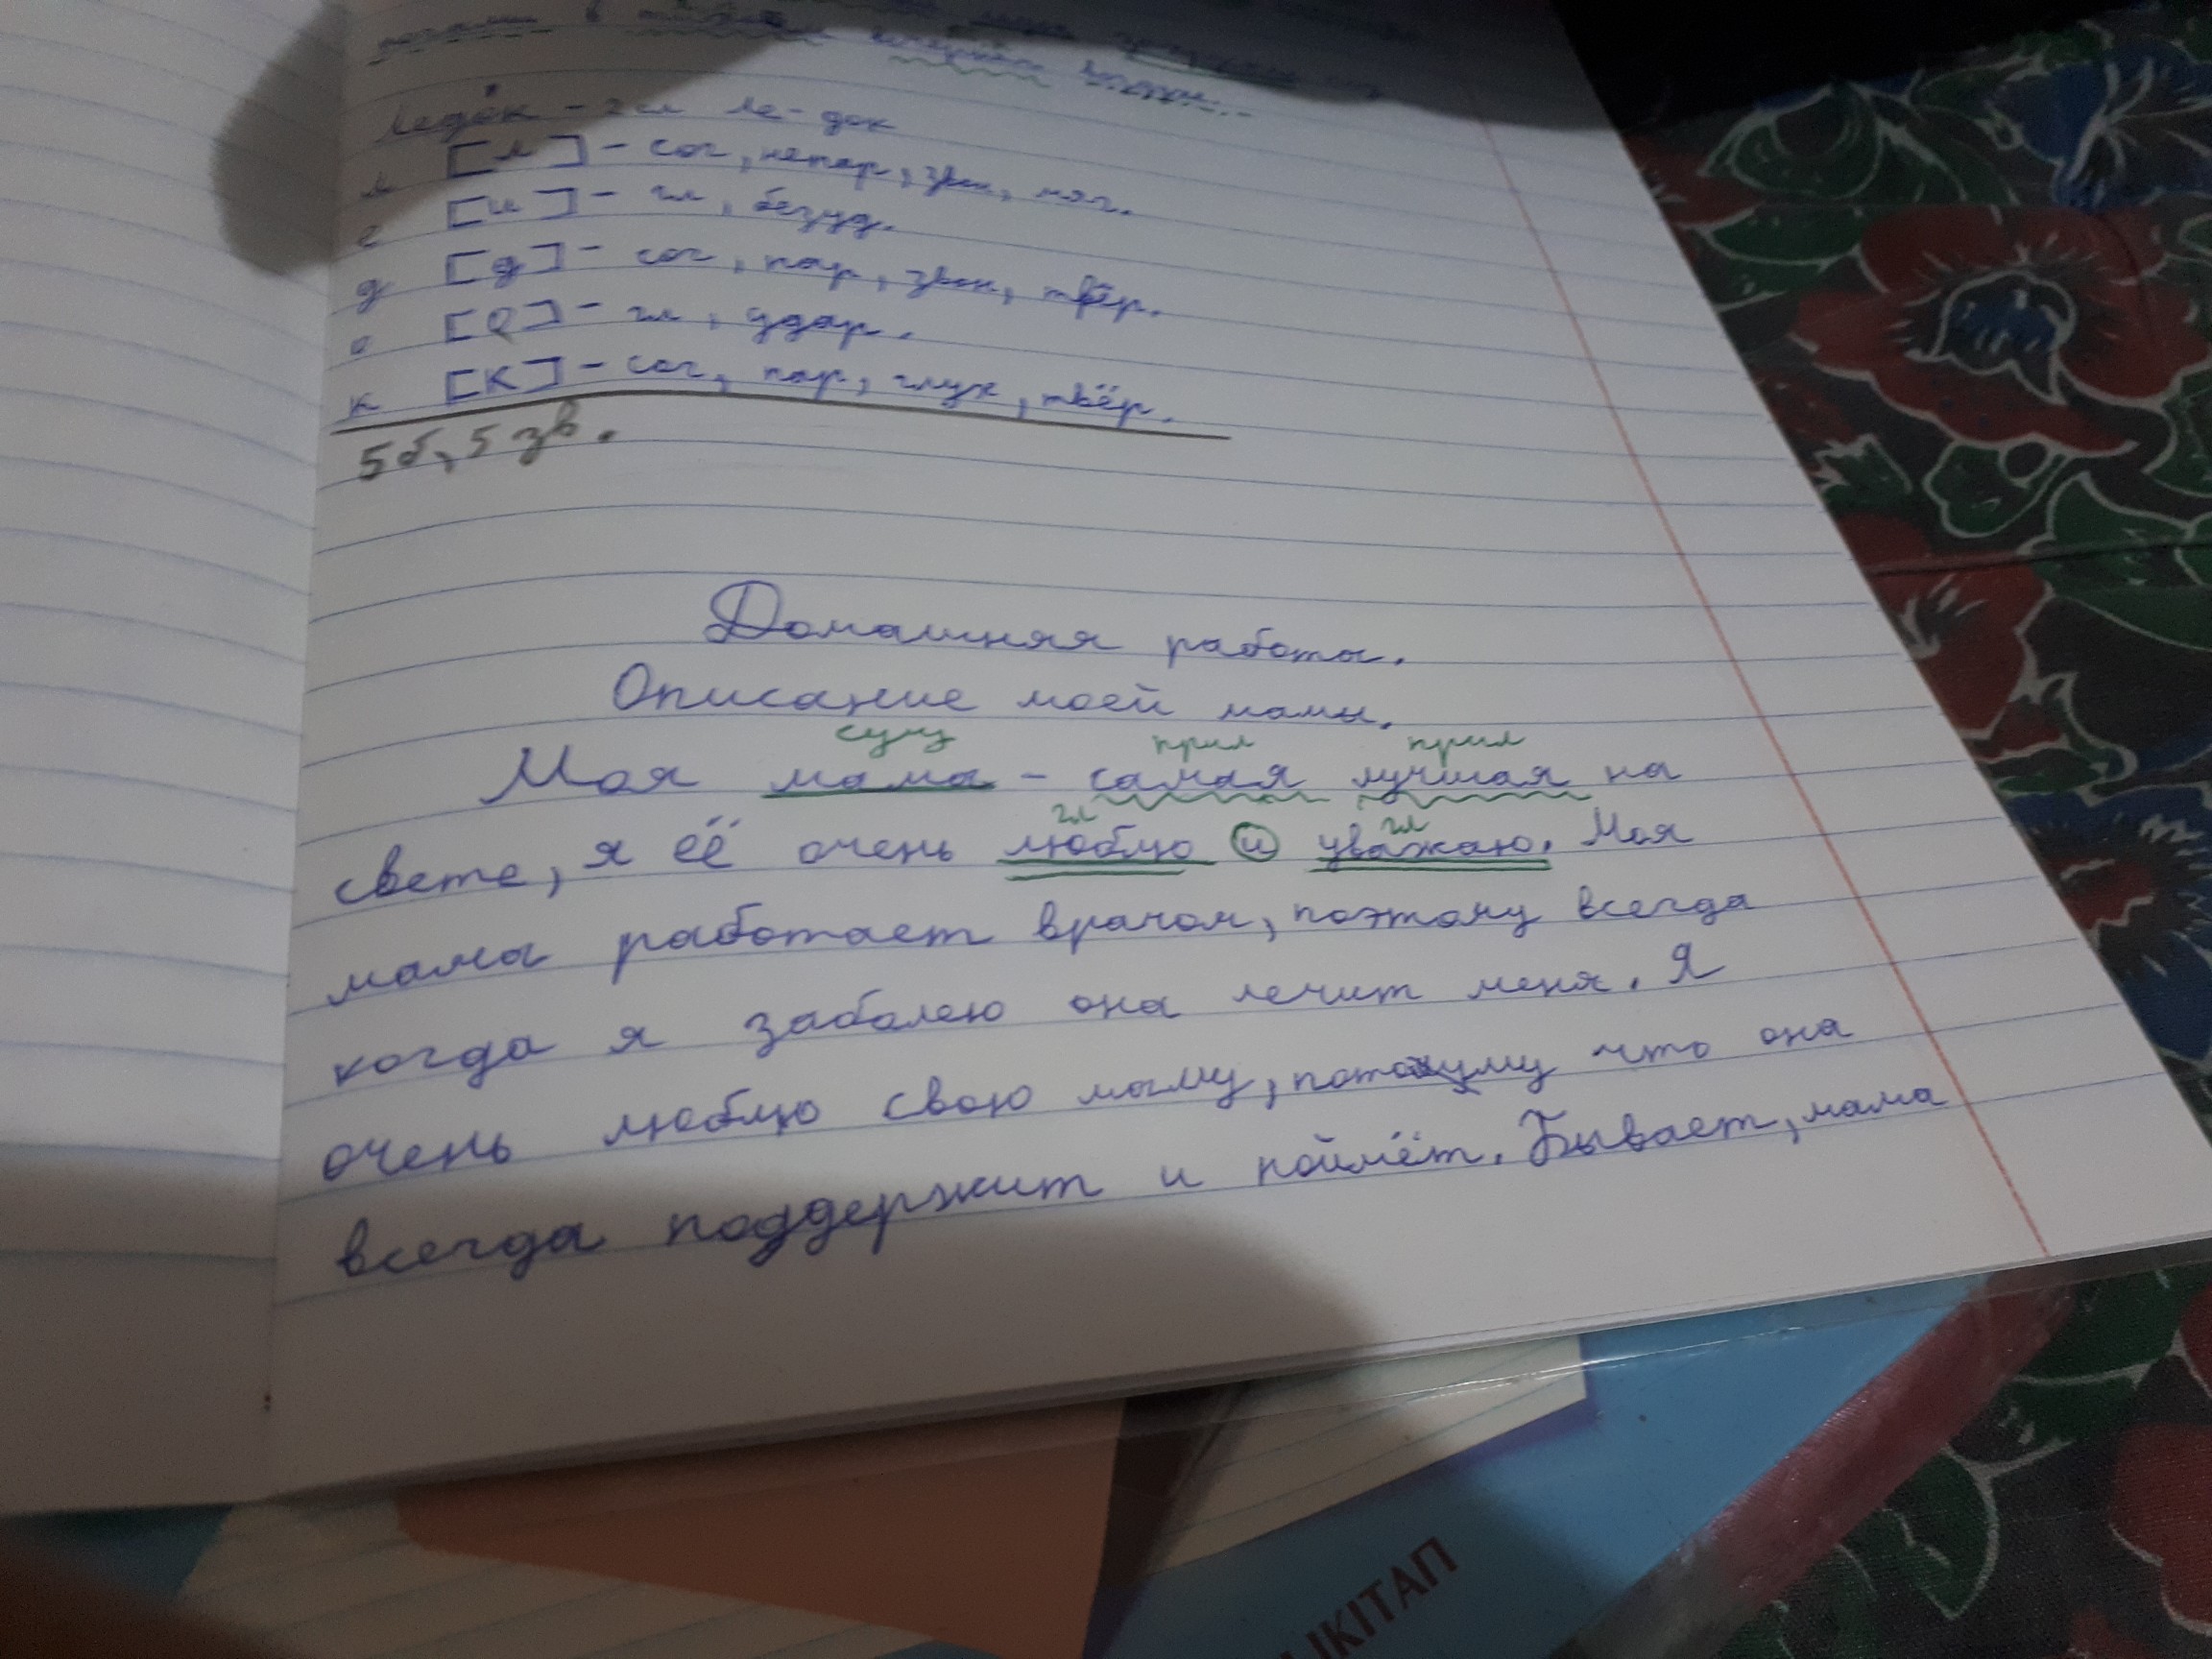 в
Ледок - 2сл ле-док
л [л] - сог, непар, звон, мяг.
е [и] - гл, безуд.
д [д] - сог, пар, звон, твёр.
о [о] - гл, удар.
к [к] - сог, пар, глух, твёр.
5 б, 5 зв.
Домашняя работы.
Описание моей мамы.
сущ прил прил
Моя мама - самая лучшая на
гл гл
свете, я её очень люблю и уважаю. Моя
мама работает врачом, поэтому всегда
когда я заболею она лечит меня. Я
очень люблю свою маму, потому что она
всегда поддержит и поймёт. Бывает, мама
ІКІТАП